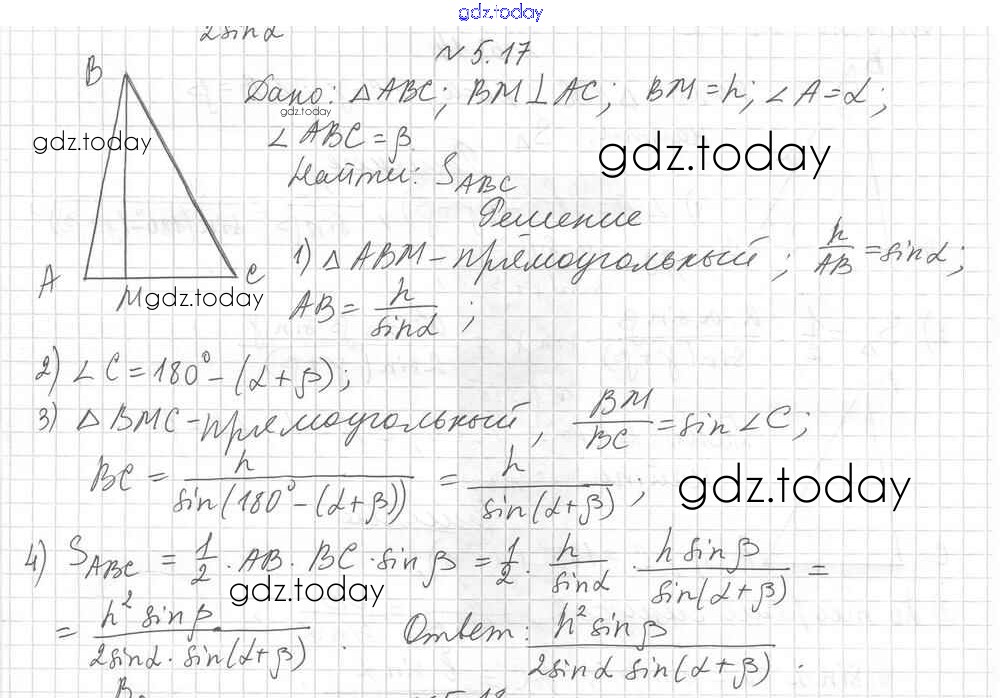 gdz.today
2sinα
№ 5.17
B
Дано: △ABC; BM⊥AC; BM=h; ∠A=α;
gdz.today
∠ABC=β
gdz.today
gdz.today
Найти: S_ABC
Решение
1) △ABM-прямоугольный; h/AB = sinα;
A
M
C
gdz.today
AB = h/sinα;
2) ∠C=180°-(α+β);
3) △BMC-прямоугольный, BM/BC = sin∠C;
BC = h/sin(180°-(α+β)) = h/sin(α+β);
gdz.today
4) S_ABC = 1/2 · AB · BC · sinβ = 1/2 · h/sinα · h sinβ/sin(α+β) =
gdz.today
= h² sinβ/2sinα · sin(α+β). Ответ: h² sinβ/2sinα sin(α+β);
B